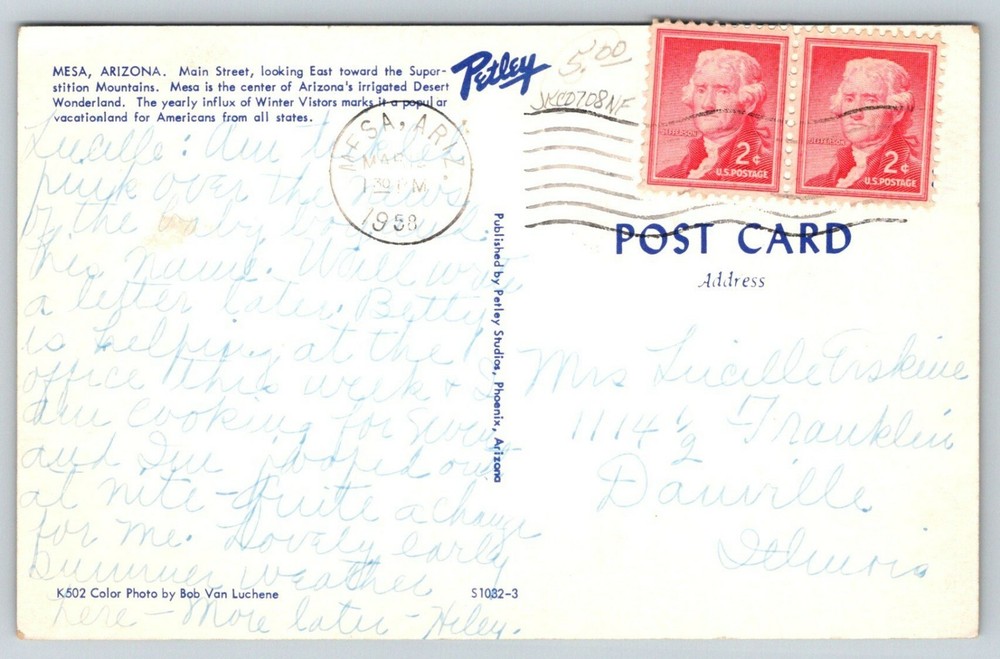 MESA, ARIZONA. Main Street, looking East toward the Super-
stition Mountains. Mesa is the center of Arizona's irrigated Desert
Wonderland. The yearly influx of Winter Vistors marks it a popular
vacationland for Americans from all states.
Petley
5.00
JKC0708NF
MESA, ARIZ
MAR
1 30 PM
1958
JEFFERSON
2¢
U.S. POSTAGE
JEFFERSON
2¢
U.S. POSTAGE
POST CARD
Address
Lucille: Am
over the news
of the baby
his name. Will write
a letter later. Betty
is helping at the
office this week & I
am cooking for
and I'm pooped out
at nite - Quite a change
for me. Lovely early
summer weather
here - More later - Heley.
Published by Petley Studios, Phoenix, Arizona
Mrs Lucille Erskine
1114 1/2 Franklin
Danville
Illinois
K502 Color Photo by Bob Van Luchene
S1032-3